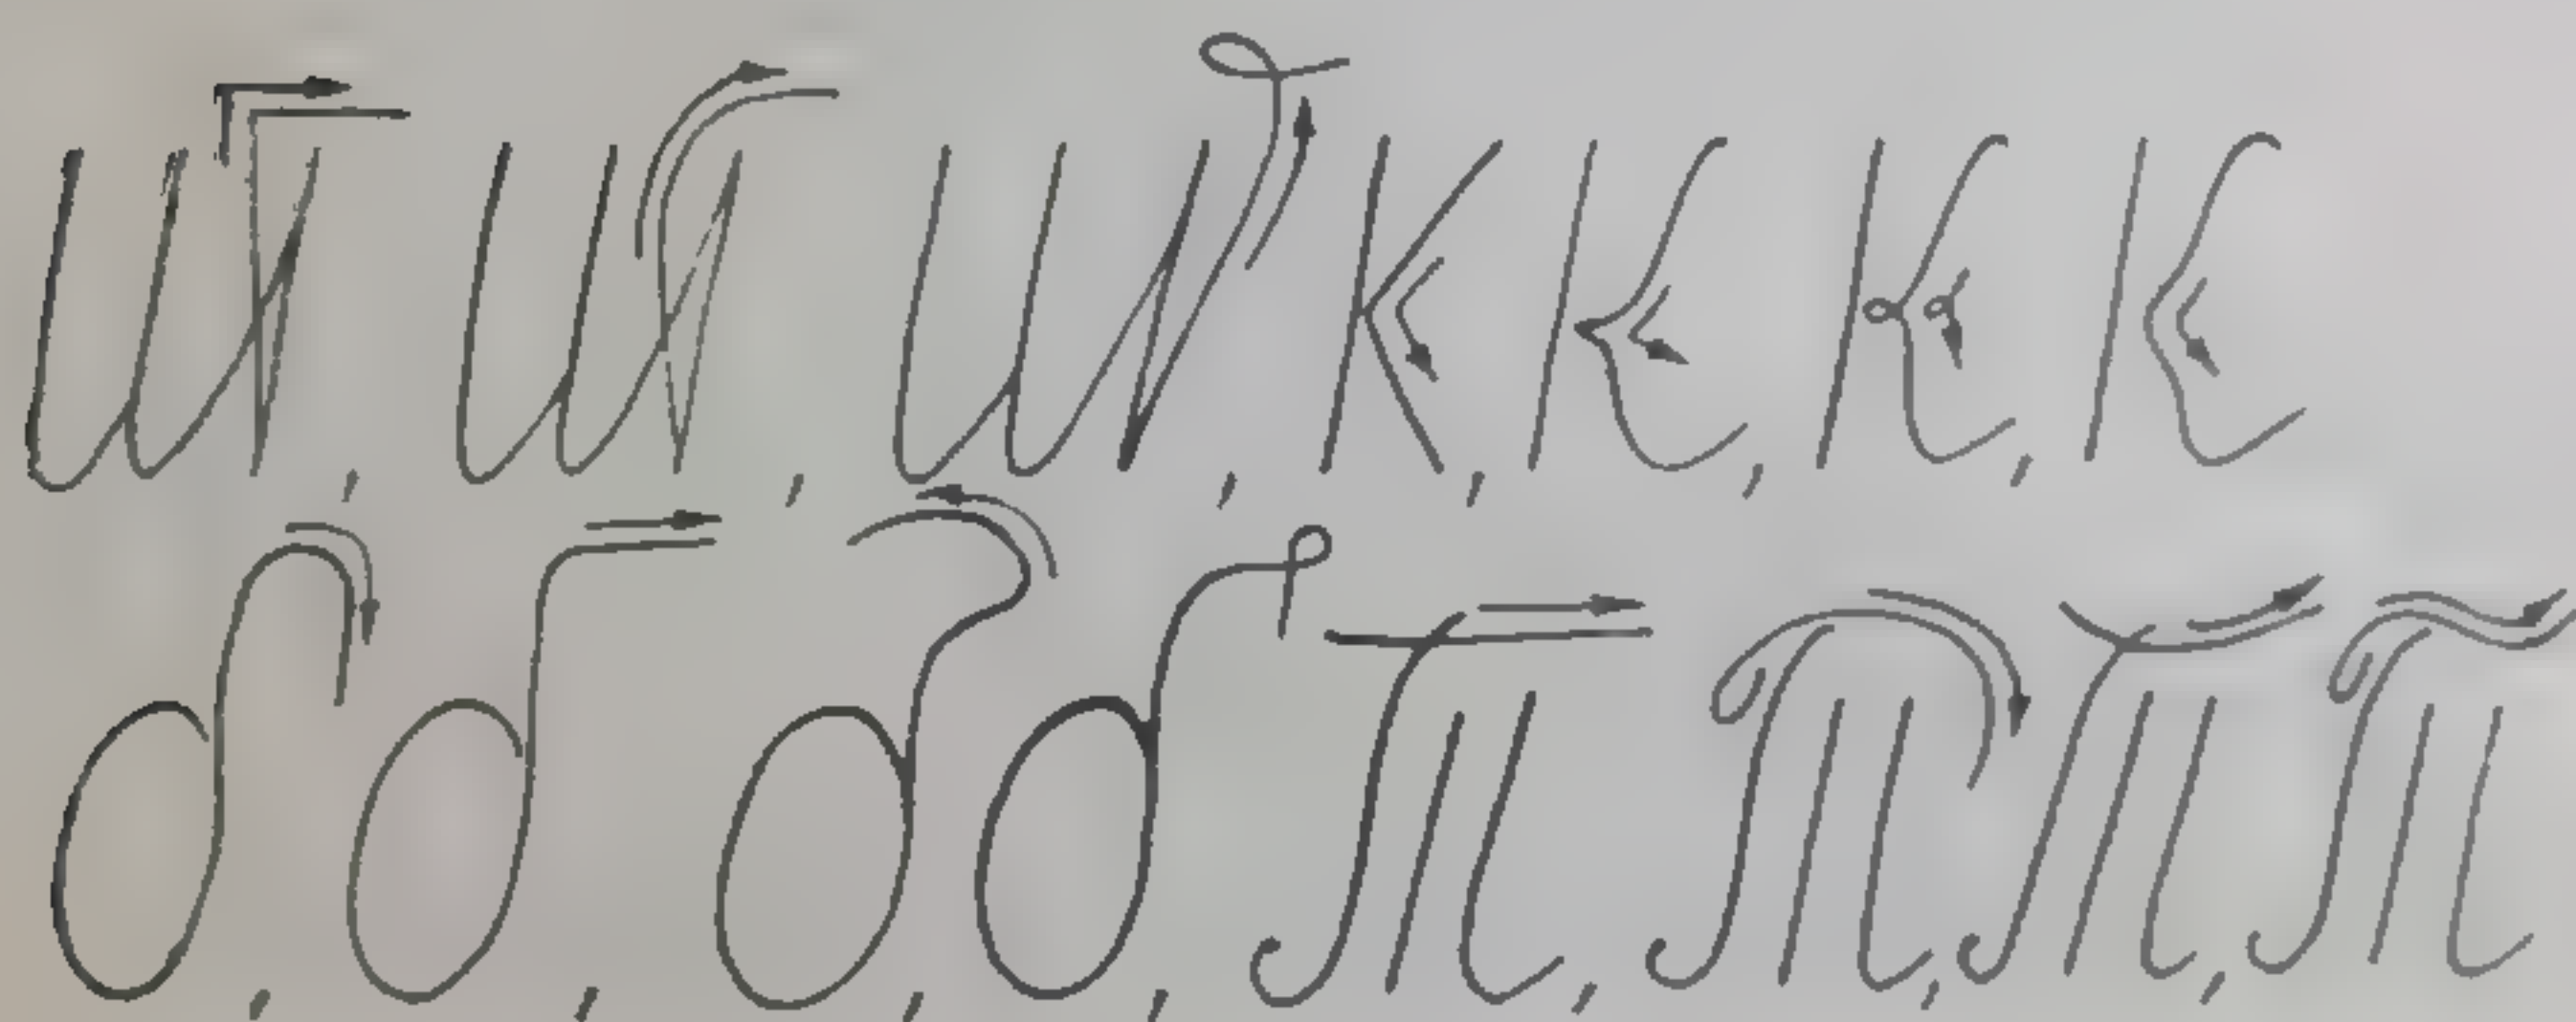 Ш, Ш, Ш, К, К, К, К
б, б, б, б, Т, Т, Т, Т